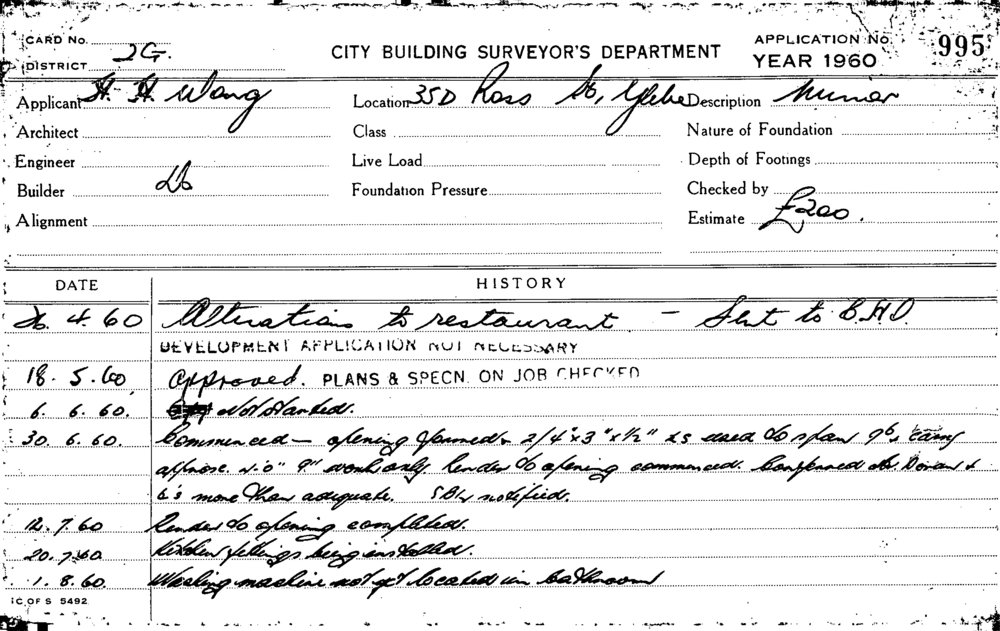 CARD No.
DISTRICT 2G.
CITY BUILDING SURVEYOR'S DEPARTMENT
APPLICATION No. 995
YEAR 1960
Applicant H. H. Wong Location 35D Ross St, Glebe Description Minor
Architect Class Nature of Foundation
Engineer Live Load Depth of Footings
Builder Do Foundation Pressure Checked by
Alignment Estimate £200.
DATE HISTORY
26. 4. 60 Alterations to restaurant - Sent to B.H.O.
DEVELOPMENT APPLICATION NOT NECESSARY
18. 5. 60 Approved. PLANS & SPECN. ON JOB CHECKED
6. 6. 60. Not Started.
30. 6. 60. Commenced - opening formed 2/4" x 3" x ½" used to span carry
approx. 9" work only. Render to opening commenced. Conferred Mr. Doran &
is more than adequate. notified.
12. 7. 60 Render to opening completed.
20. 7. 60. Kitchen fittings being installed.
1. 8. 60. Washing machine not yet located in bathroom
C. OF S 5492